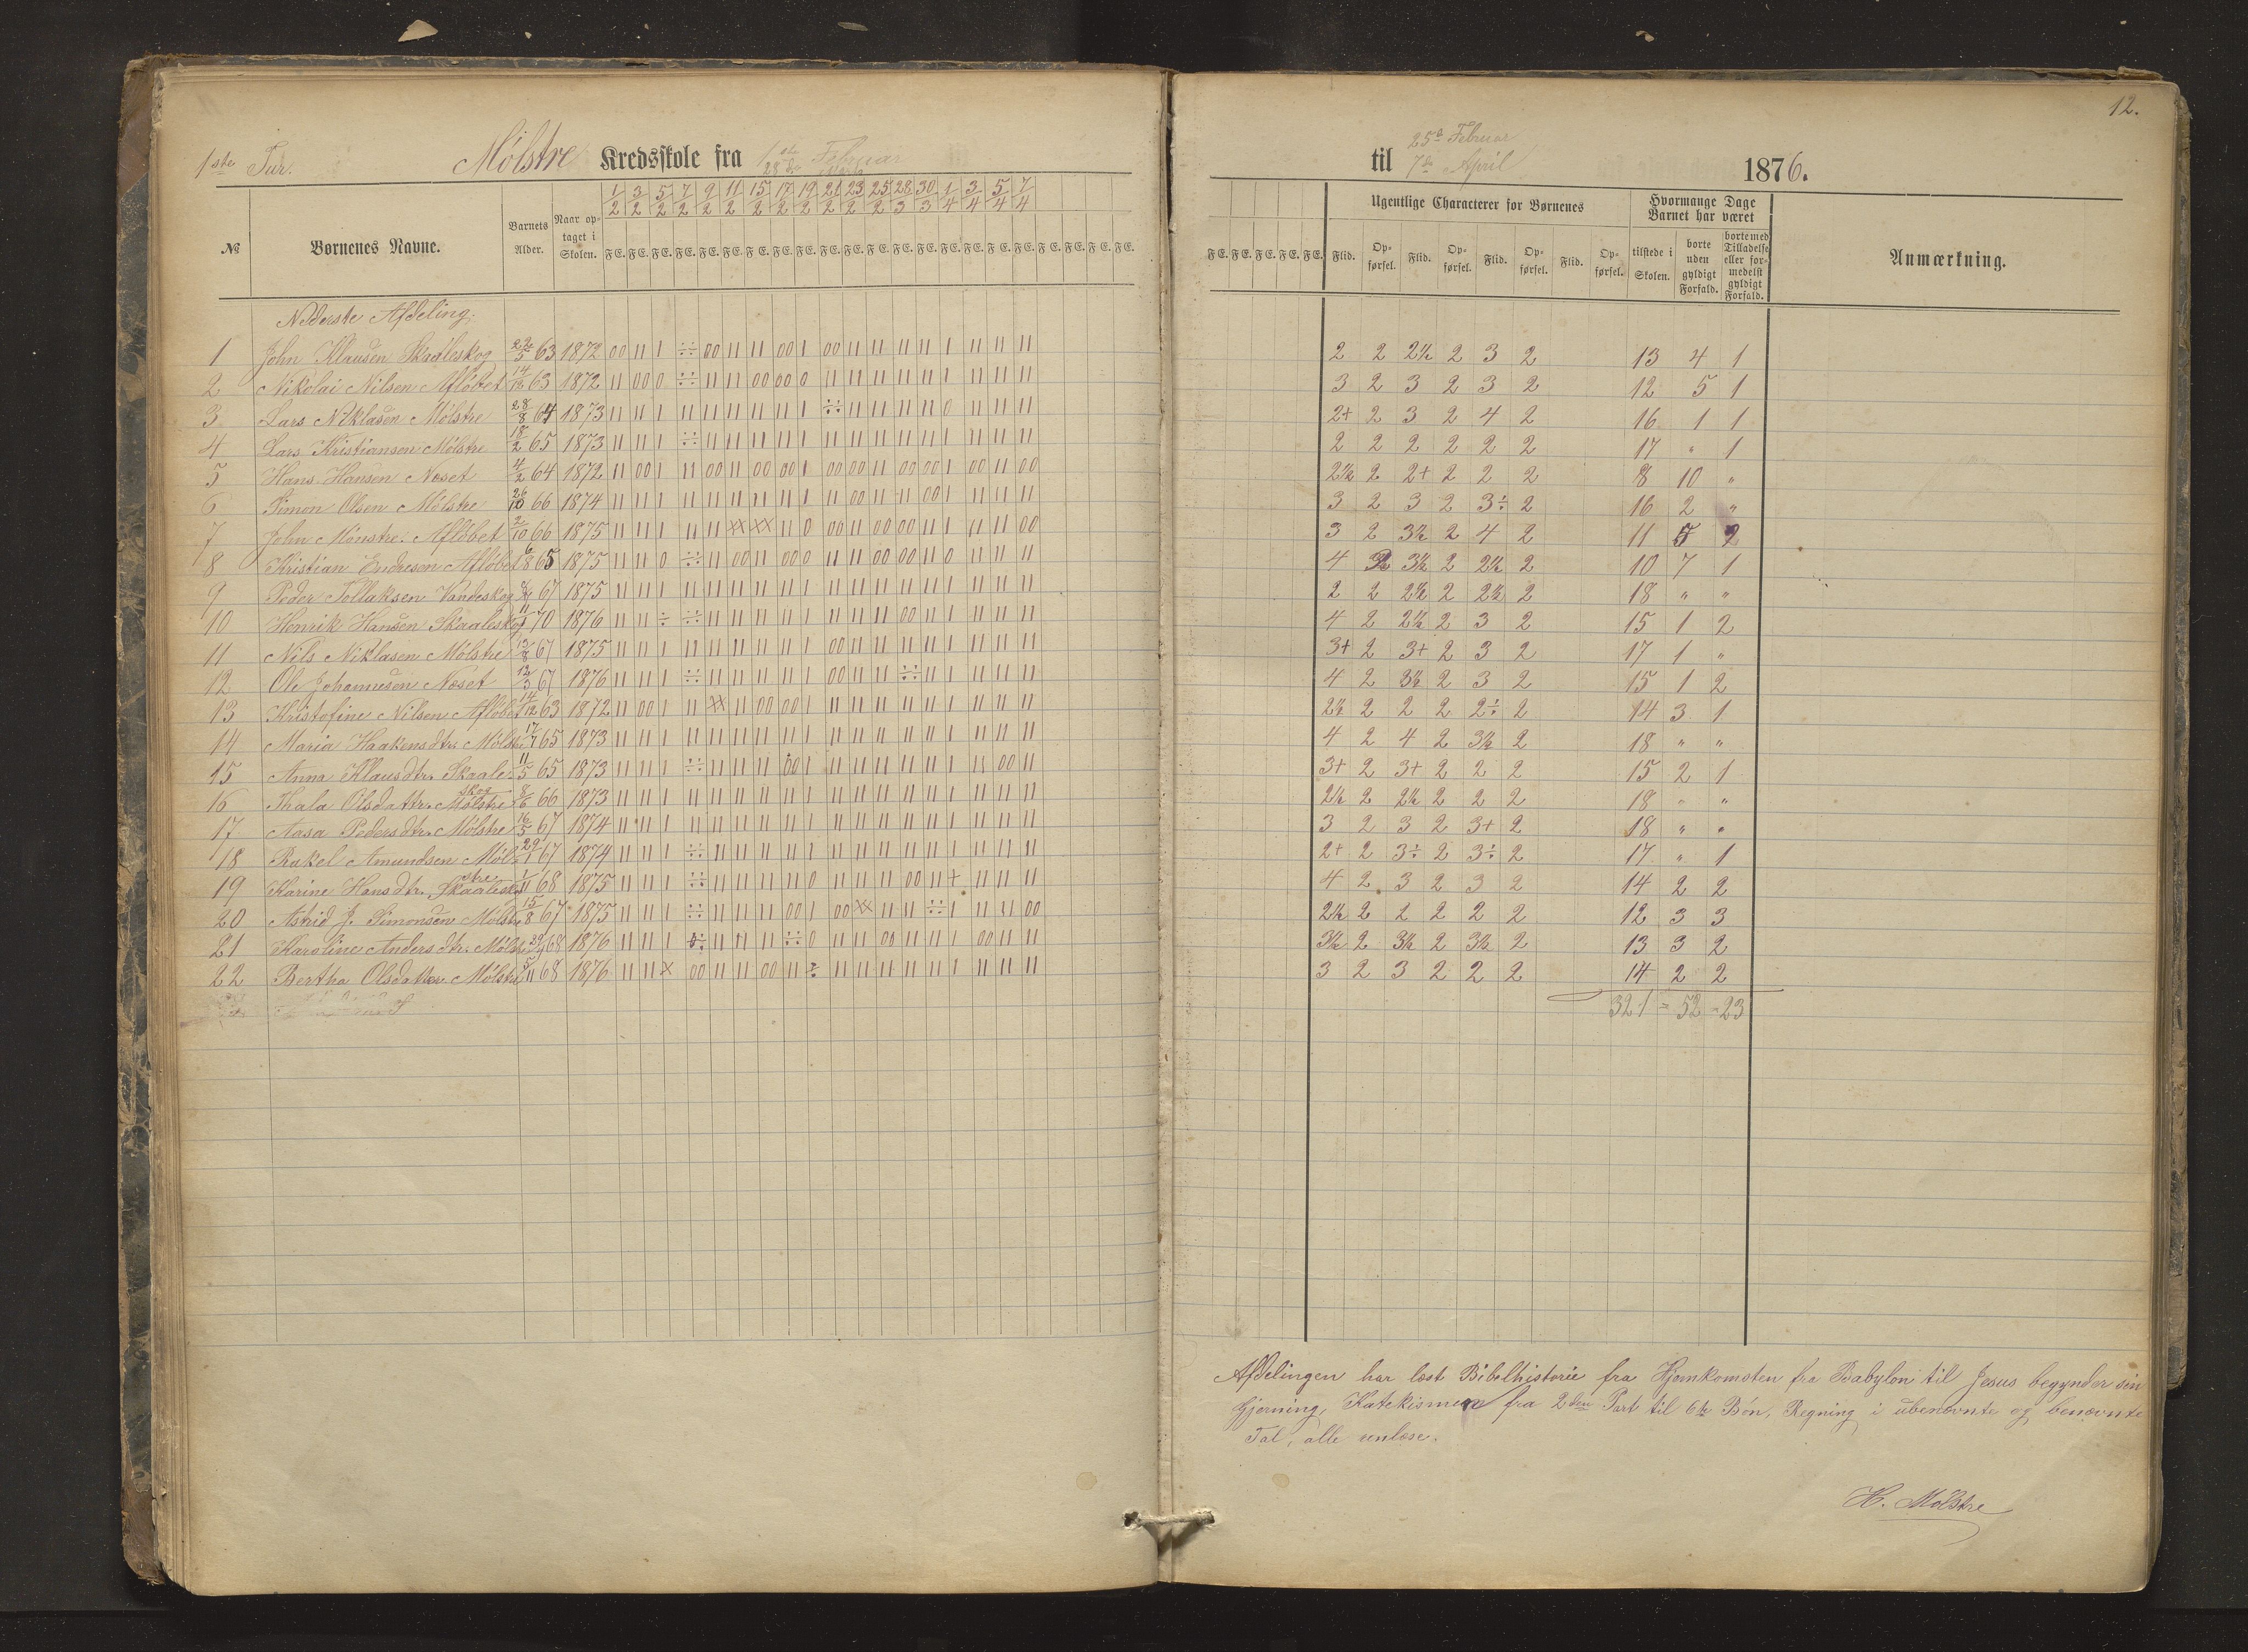 12.
1ste Tur. Mølstre Kredsskole fra 1ste Februar
28de Marts
til 25de Februar
7de April 1876.
№ Børnenes Navne. Barnets Alder. Naar optaget i Skolen.
1/2 3/2 5/2 7/2 9/2 11/2 15/2 17/2 19/2 21/2 23/2 25/2 28/3 30/3 1/4 3/4 5/4 7/4
F E. F E. F E. F E. F E. F E. F E. F E. F E. F E. F E. F E. F E. F E. F E. F E. F E. F E. F E. F E. F E. F E.
F E. F E. F E. F E. F E.
Ugentlige Characterer for Børnenes
Flid. Opførsel. Flid. Opførsel. Flid. Opførsel. Flid. Opførsel.
Hvormange Dage Barnet har været
tilstede i Skolen. borte uden gyldigt Forfald. borte med Tilladelse eller formedelst gyldigt Forfald.
Anmærkning.
Nederste Afdeling.
1 John Klausen Skaaleskog 22/5 63 1872 00 11 1 ÷÷ 00 11 11 00 1 00 11 11 11 11 1 11 11 11 2 2 2½ 2 3 2 13 4 1
2 Nikolai Nilsen Afløbet 14/12 63 1872 11 00 0 ÷÷ 11 11 00 00 0 11 11 11 11 11 1 11 11 11 3 2 3 2 3 2 12 5 1
3 Lars Niklasen Mølstre 28/8 64 1873 11 11 1 11 11 11 11 11 1 ÷÷ 11 11 11 11 0 11 11 11 2+ 2 3 2 4 2 16 1 1
4 Lars Kristiansen Mølstre 18/2 65 1873 11 11 1 ÷÷ 11 11 11 11 1 11 11 11 11 11 1 11 11 11 2 2 2 2 2 2 17 " 1
5 Hans Hansen Næset 4/2 64 1872 11 00 1 11 00 11 00 00 1 00 00 11 00 00 1 00 11 00 2½ 2 2+ 2 2 2 8 10 "
6 Simon Olsen Mølstre 26/10 66 1874 11 11 1 11 11 11 11 11 1 11 00 11 11 00 1 11 11 11 3 2 3 2 3÷ 2 16 2 "
7 John Monstre. Afløbet 2/10 66 1875 11 11 1 11 11 XX XX 11 0 00 11 00 00 11 1 11 11 00 3 2 3½ 2 4 2 11 5 2
8 Kristian Endresen Afløbet 6/8 65 1875 11 11 0 ÷÷ 11 00 11 00 0 11 11 00 00 11 0 11 11 11 4 2 3½ 2 2½ 2 10 7 1
9 Peder Tollaksen Vandeskog 67 1875 11 11 1 11 11 11 11 11 1 11 11 11 11 11 1 11 11 11 2 2 2½ 2 2½ 2 18 " "
10 Henrik Hansen Skaaleskog 70 1876 11 11 ÷ ÷÷ 11 11 11 11 1 11 11 11 00 11 1 11 11 11 4 2 2½ 2 3 2 15 1 2
11 Nils Niklasen Mølstre 67 1875 11 11 1 11 11 11 11 11 1 00 11 11 11 11 1 11 11 11 3+ 2 3+ 2 3 2 17 1 "
12 Ole Johannesen Næset 12/3 67 1876 11 11 1 ÷÷ 11 11 11 11 1 00 11 11 ÷÷ 11 1 11 11 11 4 2 3½ 2 3 2 15 1 2
13 Kristofine Nilsen Afløbet 14/12 63 1872 11 00 1 11 XX 11 00 00 1 11 11 11 11 11 1 11 11 11 2½ 2 2 2 2÷ 2 14 3 1
14 Maria Haakensdtr. Mølstre 17/7 65 1873 11 11 1 11 11 11 11 11 1 11 11 11 11 11 1 11 11 11 4 2 4 2 3½ 2 18 " "
15 Anna Klausdtr. Skaaleskog 11/5 65 1873 11 11 1 ÷÷ 11 11 11 00 1 11 11 11 11 11 1 11 00 11 3+ 2 3+ 2 2 2 15 2 1
16 Thala Olsdattr. Mølstre 8/6 66 1873 11 11 1 11 11 11 11 11 1 11 11 11 11 11 1 11 11 11 2½ 2 2½ 2 2 2 18 " "
17 Aasa Pedersdtr. Mølstre 16/5 67 1874 11 11 1 11 11 11 11 11 1 11 11 11 11 11 1 11 11 11 3 2 3 2 3+ 2 18 " "
18 Rakel Amundsen Mølstre 29/1 67 1874 11 11 1 ÷÷ 11 11 11 11 1 11 11 11 11 11 1 11 11 11 2+ 2 3÷ 2 3÷ 2 17 " 1
19 Karine Hansdtr. Skaaleskog 1/11 68 1875 11 11 1 ÷÷ 11 11 11 11 0 11 11 11 00 11 + 11 11 11 4 2 3 2 3 2 14 2 2
20 Astrid J. Simonsen Mølstre 15/8 67 1875 11 11 1 ÷÷ 11 11 11 00 1 00 XX 11 11 ÷÷ 1 11 11 00 2½ 2 2 2 2 2 12 3 3
21 Karoline Andersdtr. Mølstre 68 1876 11 11 1 ÷÷ 11 11 11 ÷÷ 0 11 11 00 11 11 1 00 11 11 3½ 2 3½ 2 3½ 2 13 3 2
22 Bertha Olsdatter Mølstre 5/11 68 1876 11 11 X 00 11 11 00 11 ÷ 11 11 11 11 11 1 11 11 11 3 2 3 2 2 2 14 2 2
321 = 52 - 23
Afdelingen har læst Bibelhistorie fra Hjemkomsten fra Babylon til Jesus begynder sin
Gjerning, Katekismen fra 2den Part til 6te Bøn, Regning i ubenævnte og benævnte
Tal, alle
H. Mølstre